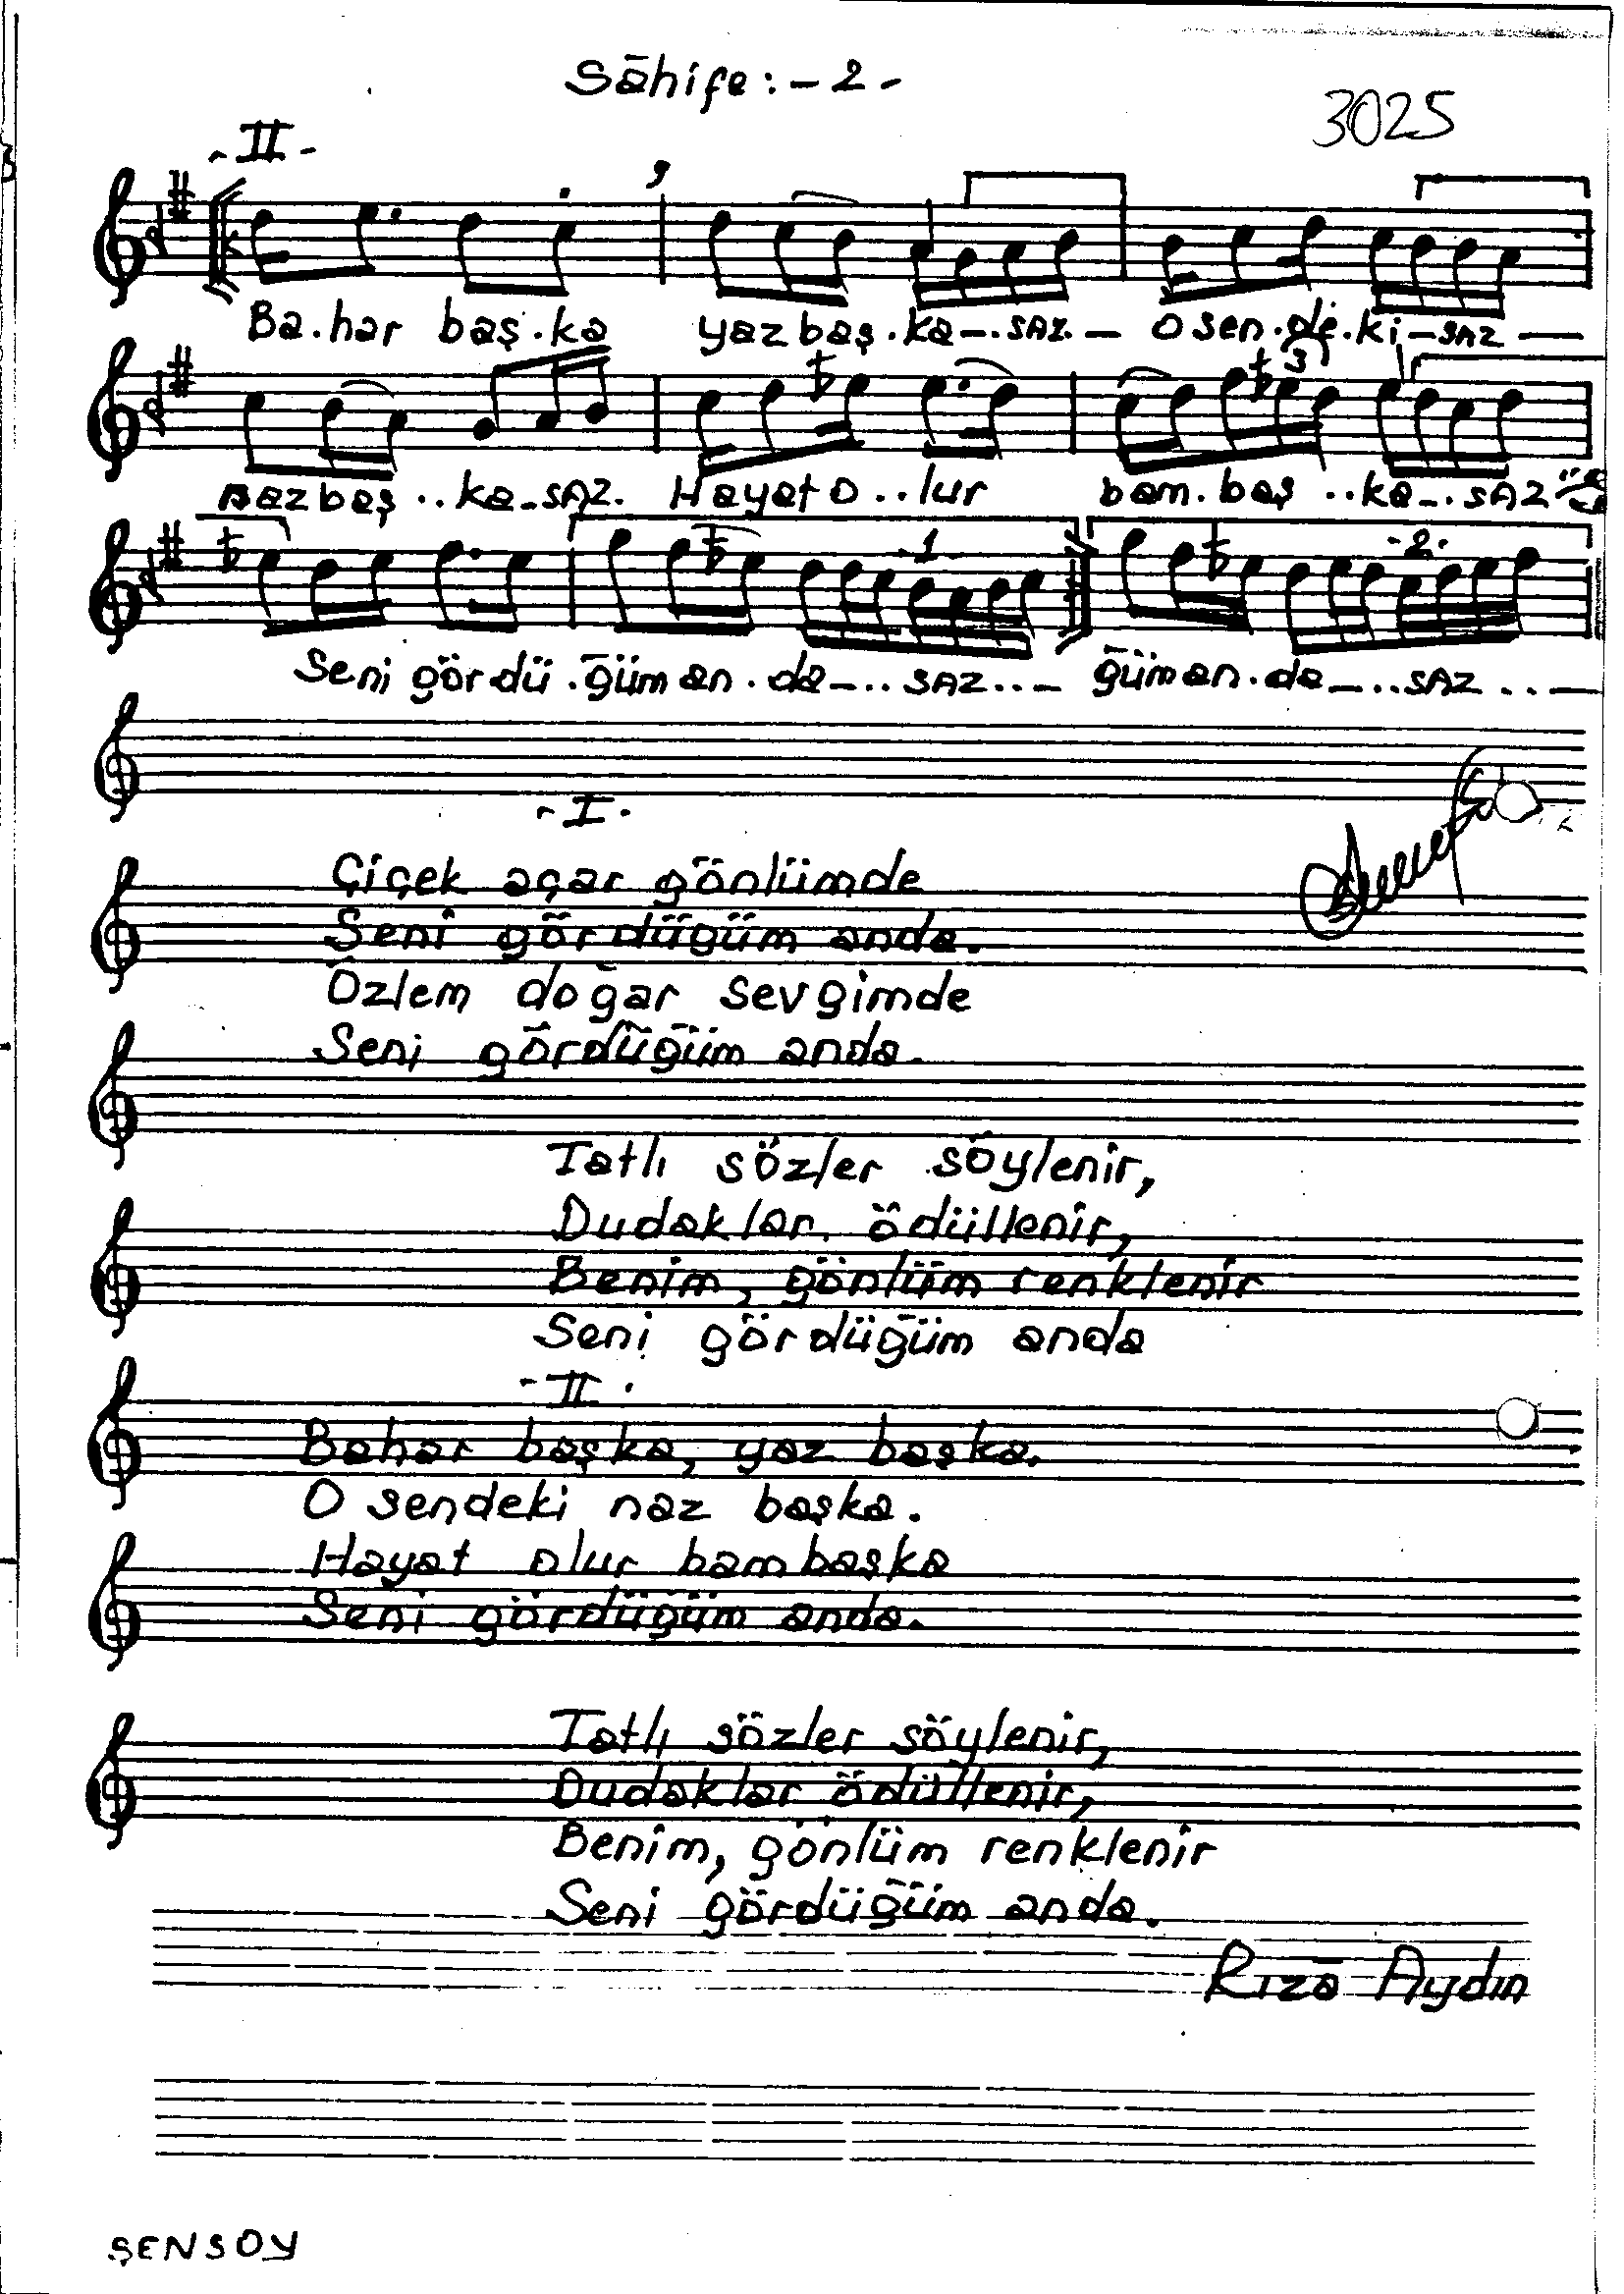 Sāhife : - 2 -
3025
- II -
Ba.har baş.ka yaz baş.ka-.saz.- O sen.de.ki-saz-
nazbaş..ka-saz. Hayat o..lur bam.baş..ka-.saz
3
Seni gördü.ğüm an.da-..saz..- ğüman.da-..saz..-
-1-
-2-
- I -
Çiçek açar gönlümde
Seni gördüğüm anda.
Özlem doğar sevgimde
Seni gördüğüm anda.
Tatlı sözler söylenir,
Dudaklar ödüllenir,
Benim, gönlüm renklenir
Seni gördüğüm anda
- II -
Bahar başka, yaz başka.
O sendeki naz başka.
Hayat olur bambaşka
Seni gördüğüm anda.
Tatlı sözler söylenir,
Dudaklar ödüllenir,
Benim, gönlüm renklenir
Seni gördüğüm anda.
Rıza Aydın
ŞENSOY